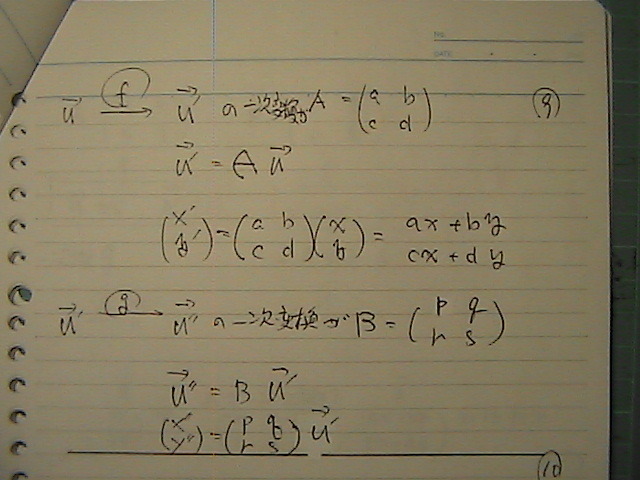 NO.
DATE
f
u⃗ → u⃗′ の一次変換が A = (a b c d) ⑨
u⃗′ = A u⃗
(x′ y′) = (a b c d)(x y) = ax + by
cx + dy
g
u⃗′ → u⃗″ の一次変換が B = (p q r s)
u⃗″ = B u⃗′
(x″ y″) = (p q r s) u⃗′
⑩